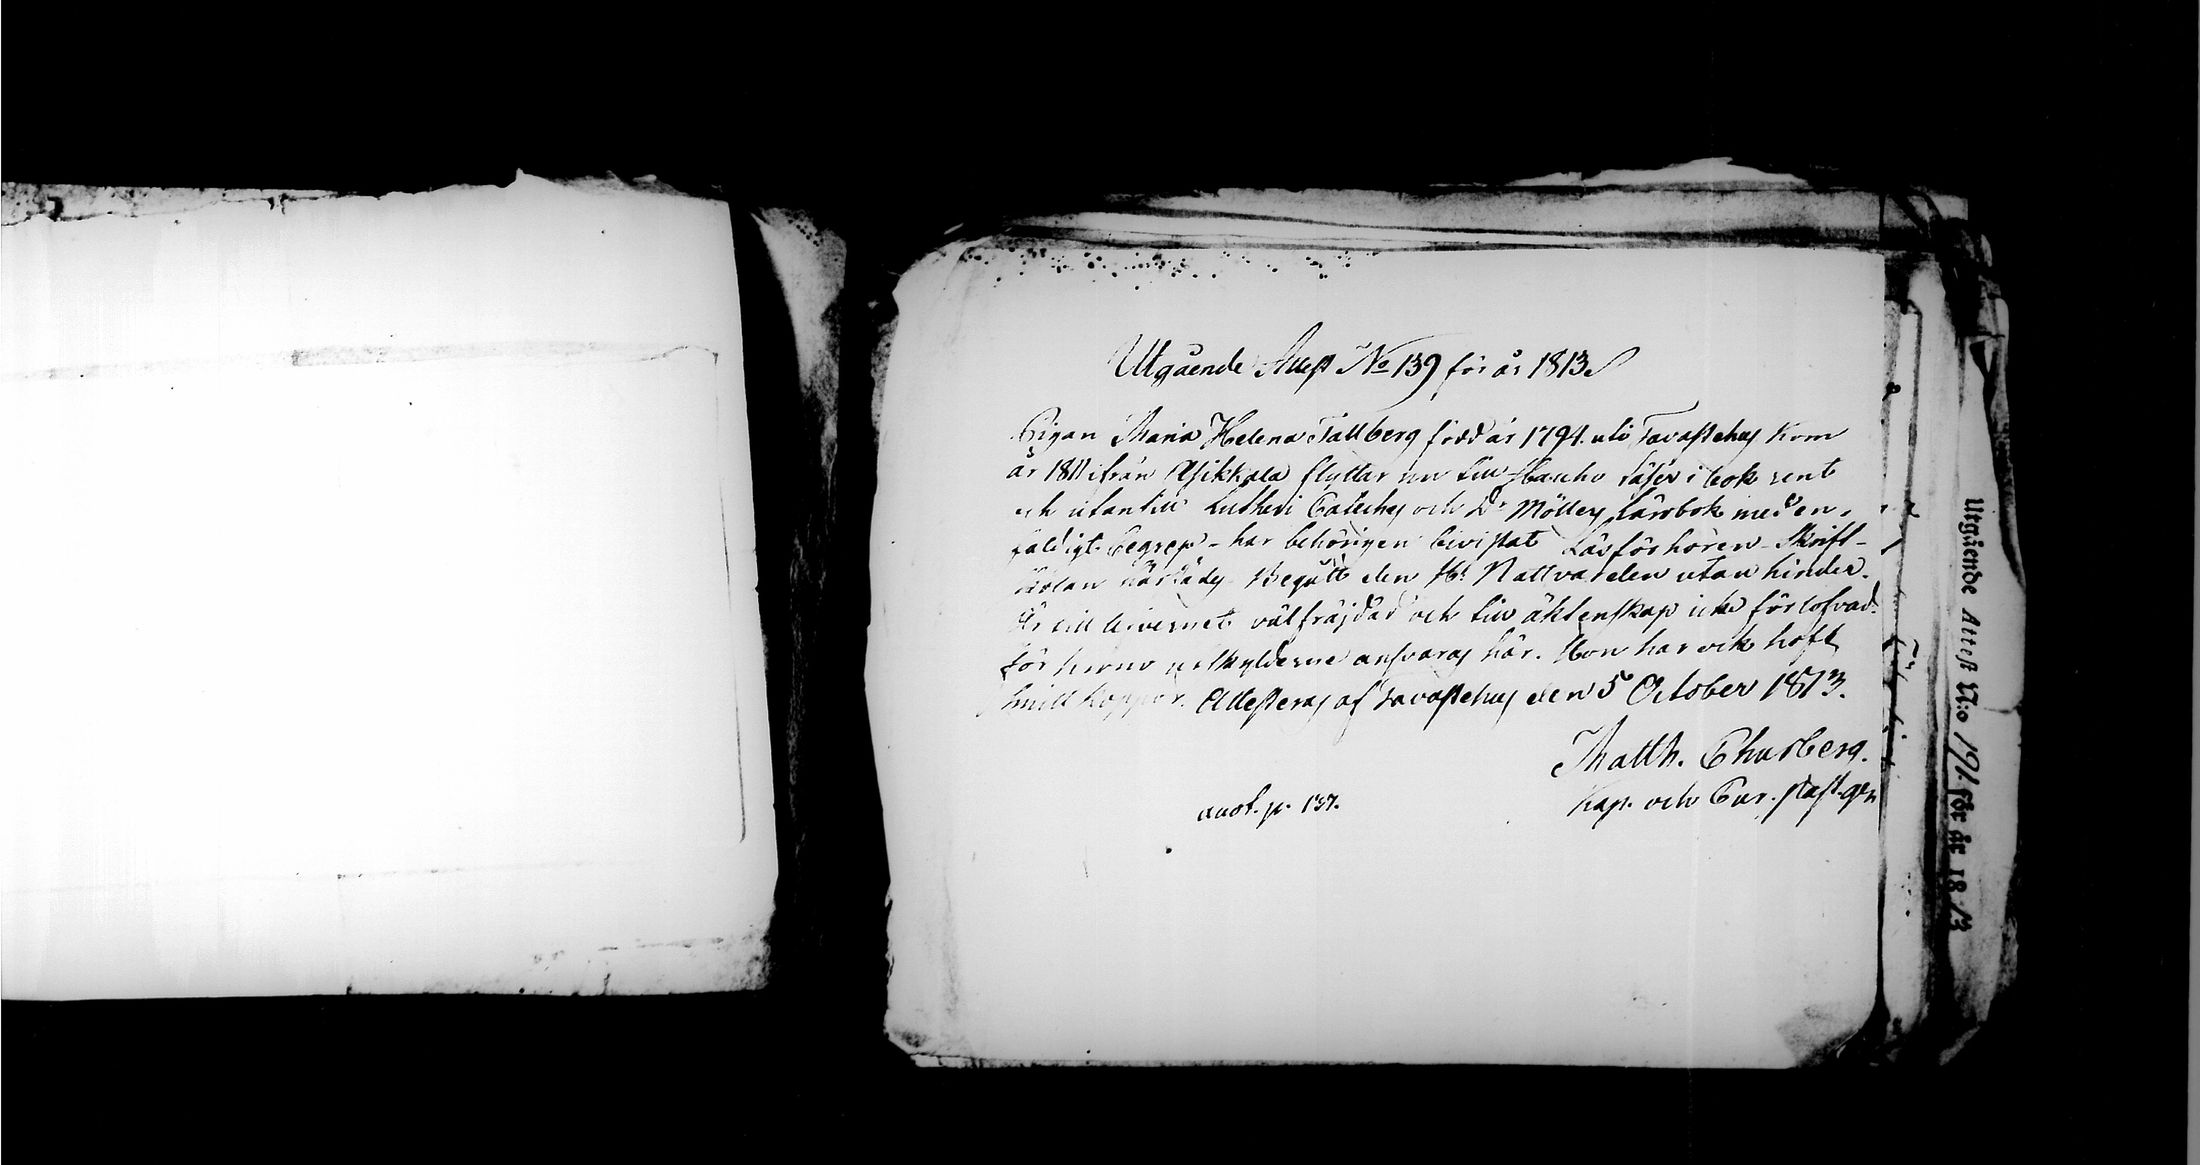 Utgående Attest No 139 för år 1813
Pigan Maria Helena Tallberg född år 1794 uti Tavastehus kom
år 1811 ifrån Asikkala flyttar nu till Hauho läser i bok rent
och utantill Lutheri Cateches och Dr Möllers Lärobok med en-
faldigt begrep - har behörigen bivistat Läsförhören - Skrift-
skolan Begått den H: Nattvarden utan hinder.
Är till lifvernet välfräjdad och till äktenskap icke förlofvad.
för hennes utskylderne ansvaras här. Hon har ock haft
koppor. Attesteras af Tavastehus den 5 October 1813.
Matth. Churberg.
Kap. och Cur. past. gen
anot. p. 137.
Utgående Attest N:o 191 för år 1813